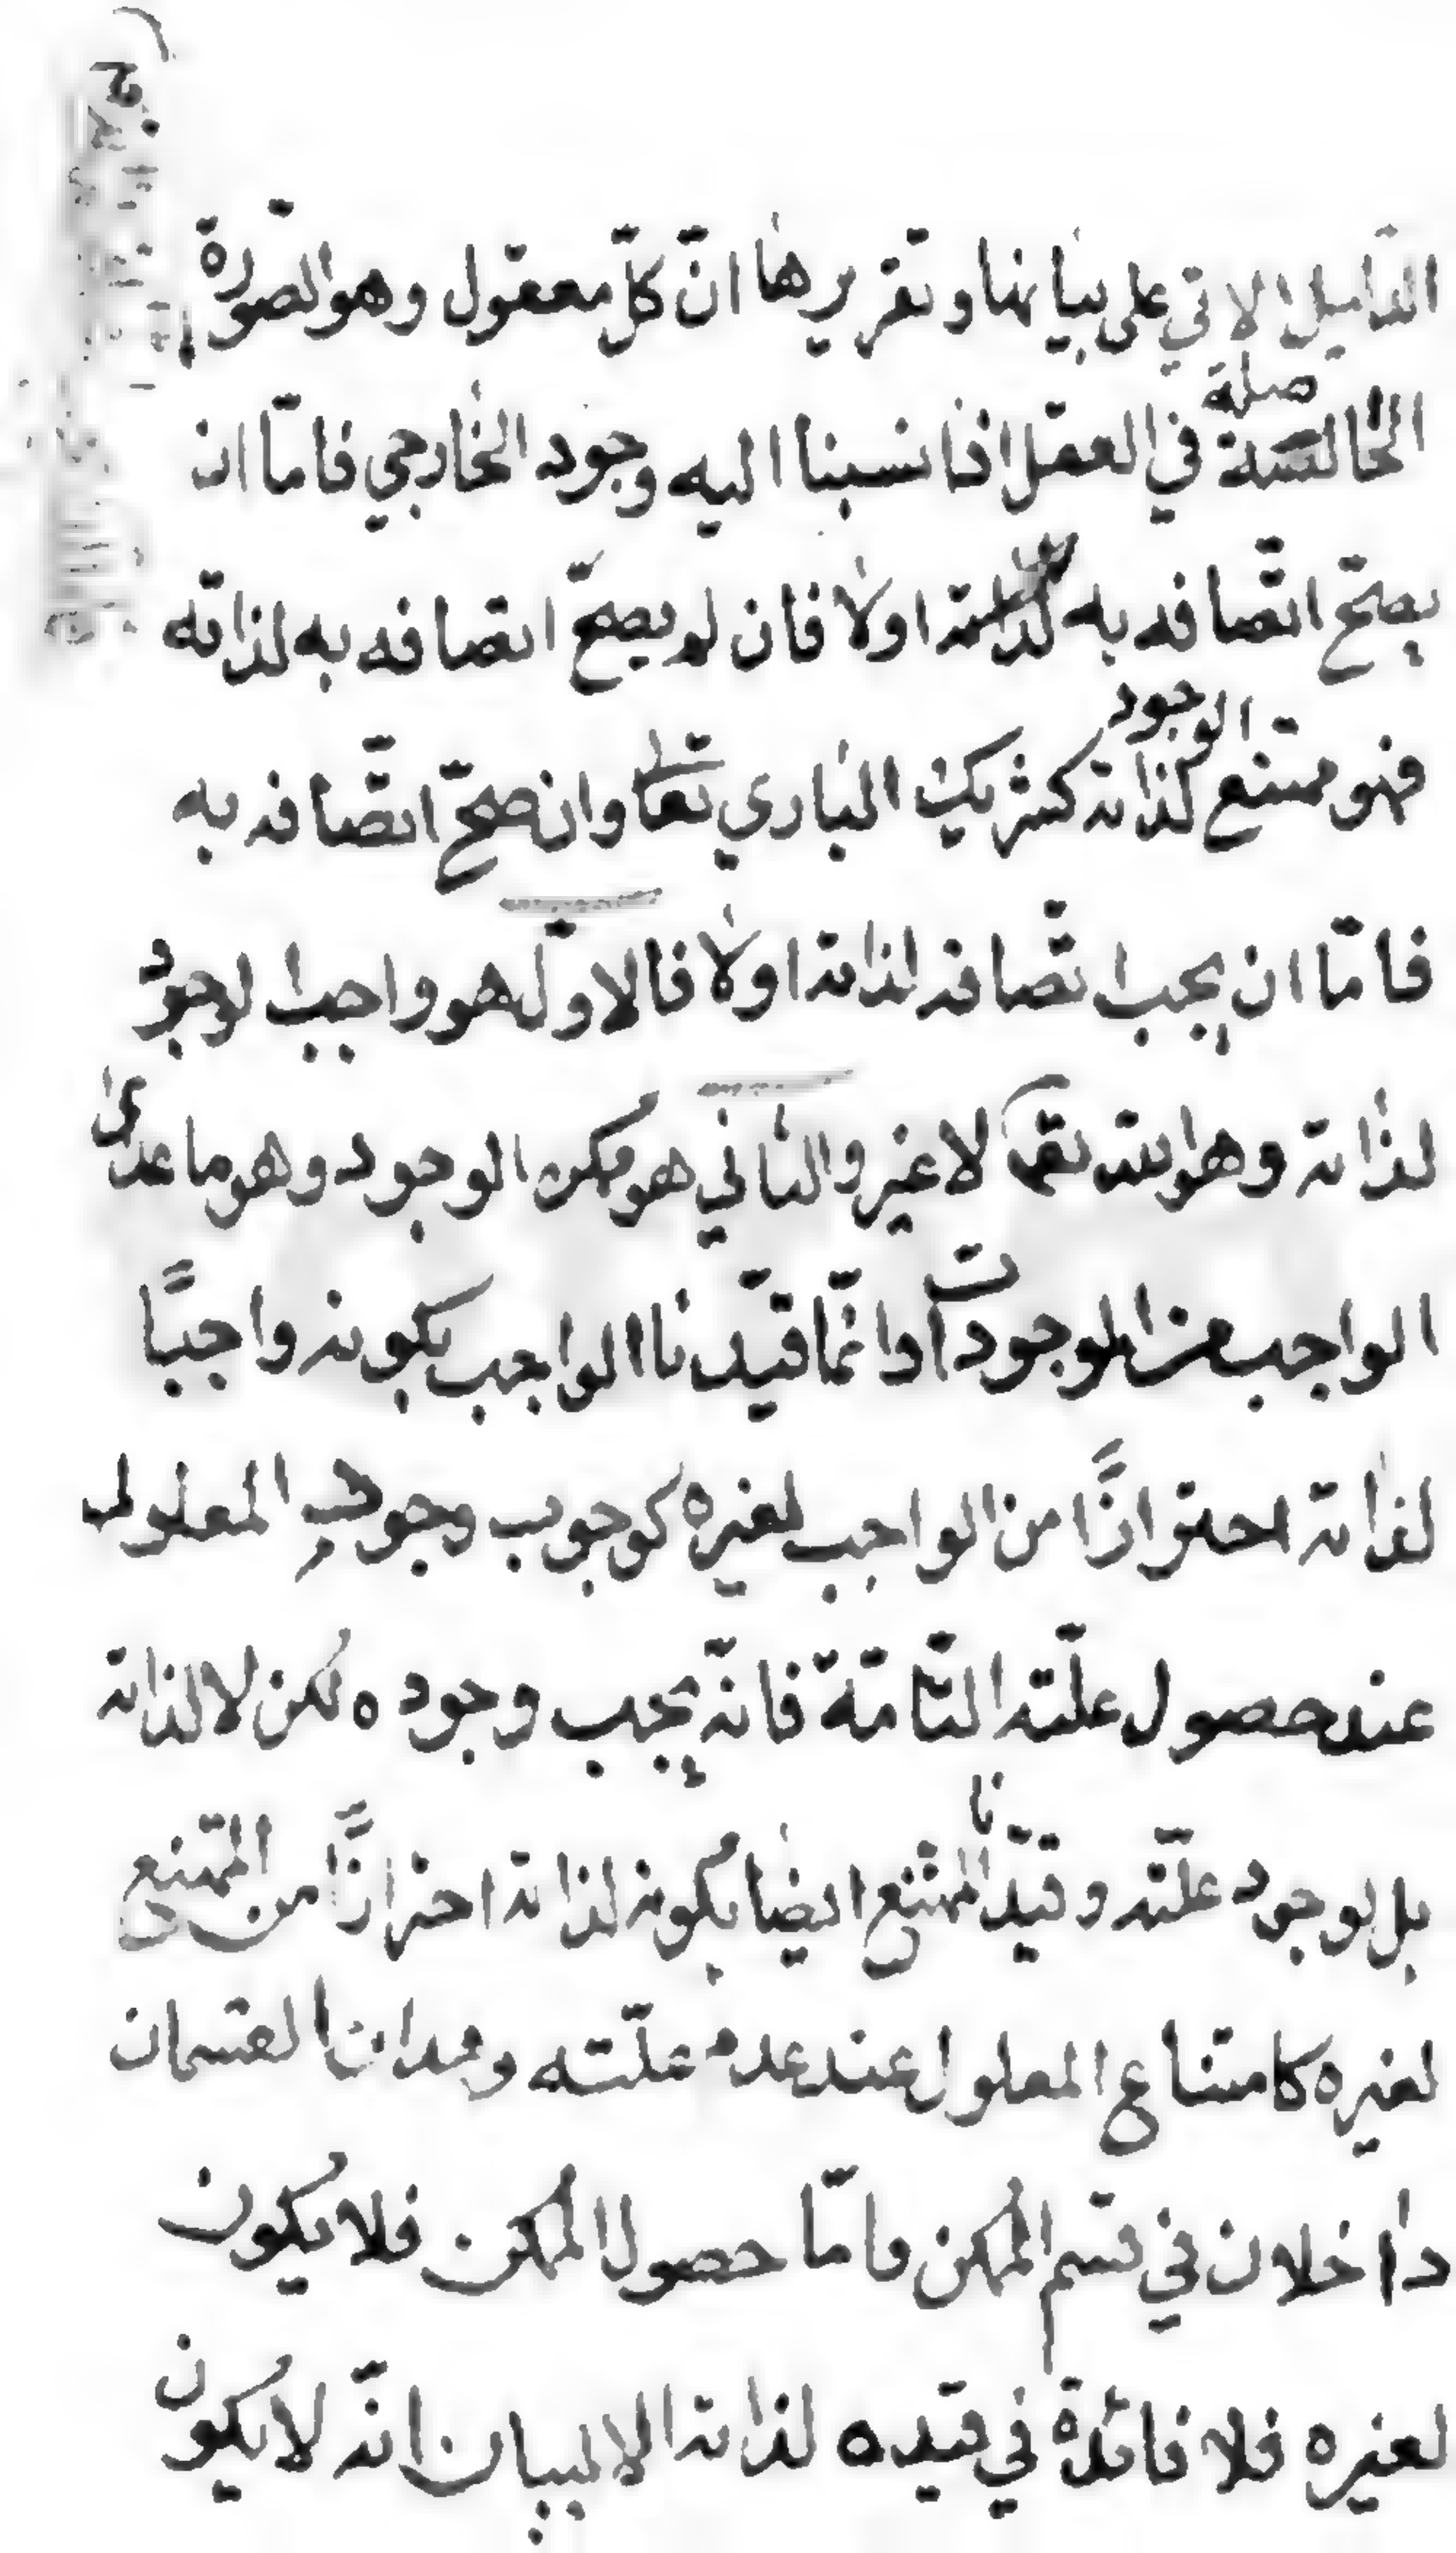 الدليل الاتي على بيانها وتقريرها انّ كلّ معقول وهو الصّورة
الحاصلة في العقل اذا نسبنا اليه وجود الخارجي فامّا ان
يصحّ اتّصافه به لذاته اولا فان لم يصحّ اتصافه به لذاته
فهو ممتنع الوجود لذاته كشريك الباري تعالى وان صحّ اتّصافه به
فامّا ان يجب اتّصافه لذاته اولا فالاوّل هو واجب الوجود
لذاته وهو الله تعالى لا غير والثاني هو ممكن الوجود وهو ما عدى
الواجب من الموجودات وانّما قيّدنا الواجب بكونه واجبًا
لذاته احترازًا من الواجب لغيره كوجوب وجود المعلول
عند حصول علّته التّامّة فانّه يجب وجوده لكن لا لذاته
بل لوجود علّته وقيّدنا الممتنع ايضا بكونه لذاته احترازًا من الممتنع
لغيره كامتناع المعلول عند عدم علّته وهذان القسمان
داخلان في قسم الممكن وامّا حصول الممكن فلا يكون
لغيره فلا فائدة في قيده لذاته الا لبيان انّه لا يكون